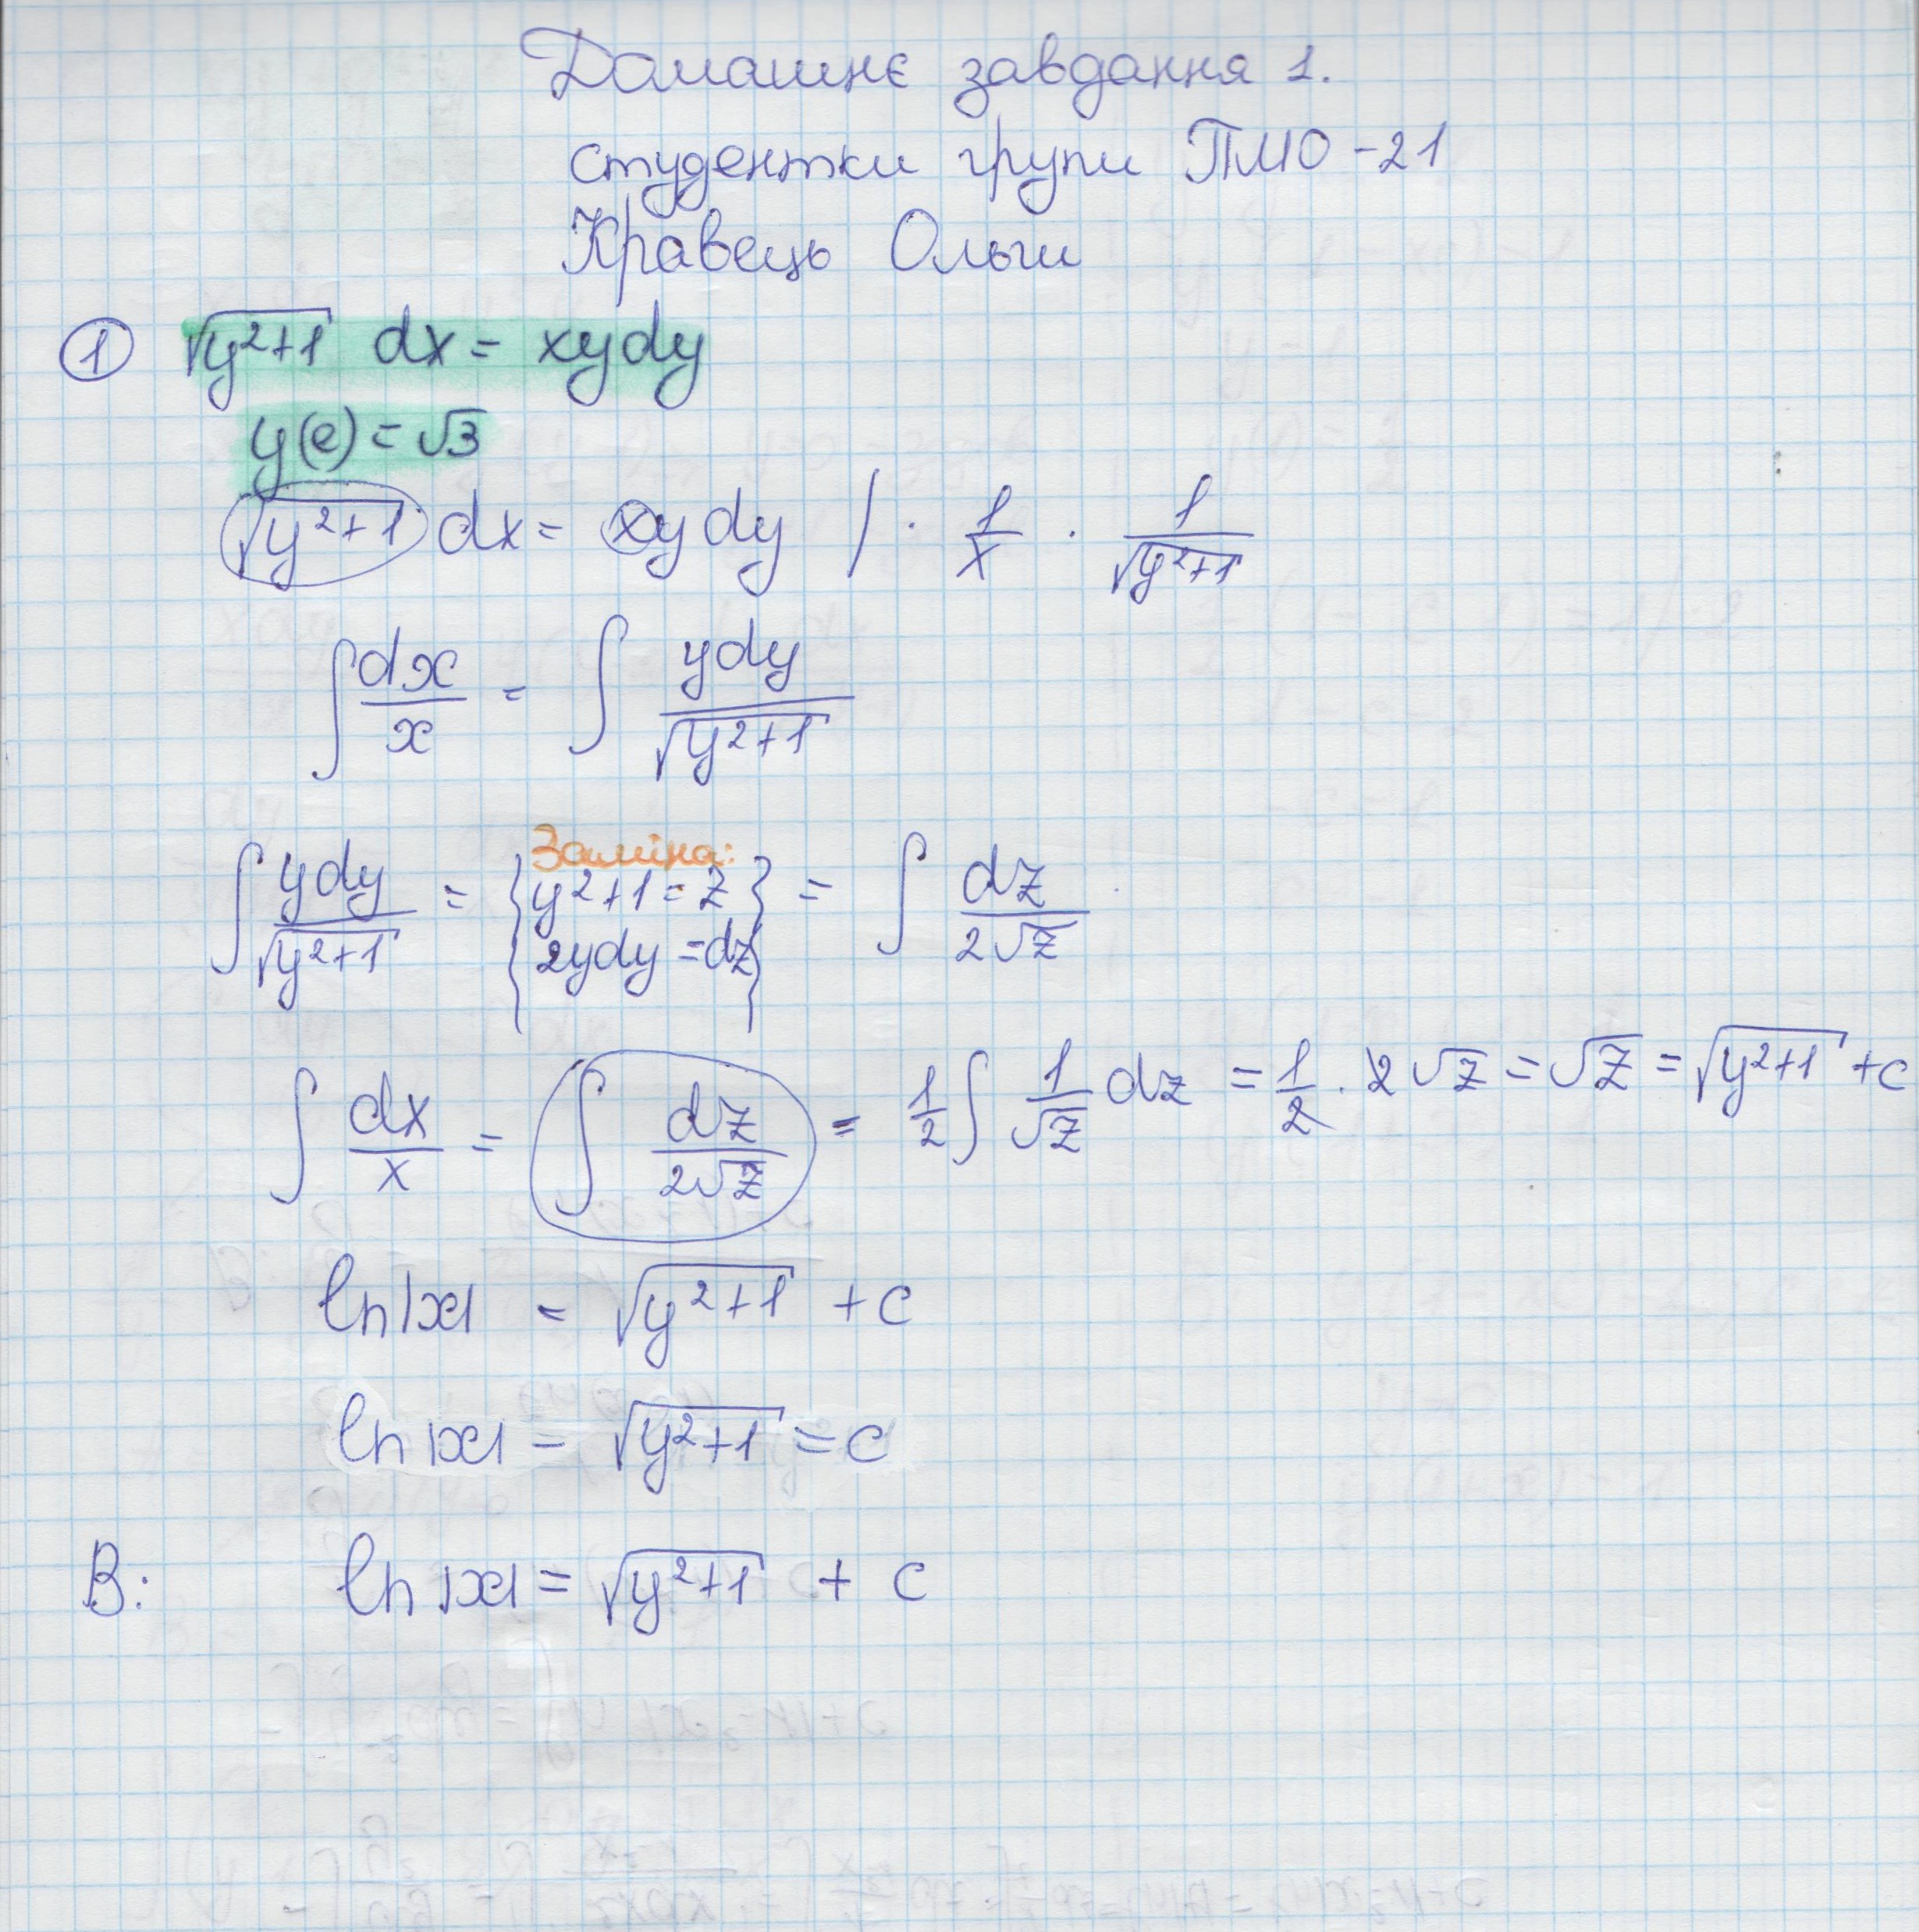 Домашнє завдання 1.
студентки групи ПМО-21
Кравець Ольги
① √(y²+1) dx = xydy
y(e) = √3
√(y²+1) dx = xy dy / · 1/x · 1/√(y²+1)
∫ dx/x = ∫ ydy/√(y²+1)
Заміна:
∫ ydy/√(y²+1) = { y²+1 = z  2ydy = dz } = ∫ dz/(2√z)
∫ dx/x = ∫ dz/(2√z) = 1/2 ∫ 1/√z dz = 1/2 · 2√z = √z = √(y²+1) + c
ln|x| = √(y²+1) + c
ln|x| - √(y²+1) = c
В: ln|x| = √(y²+1) + c